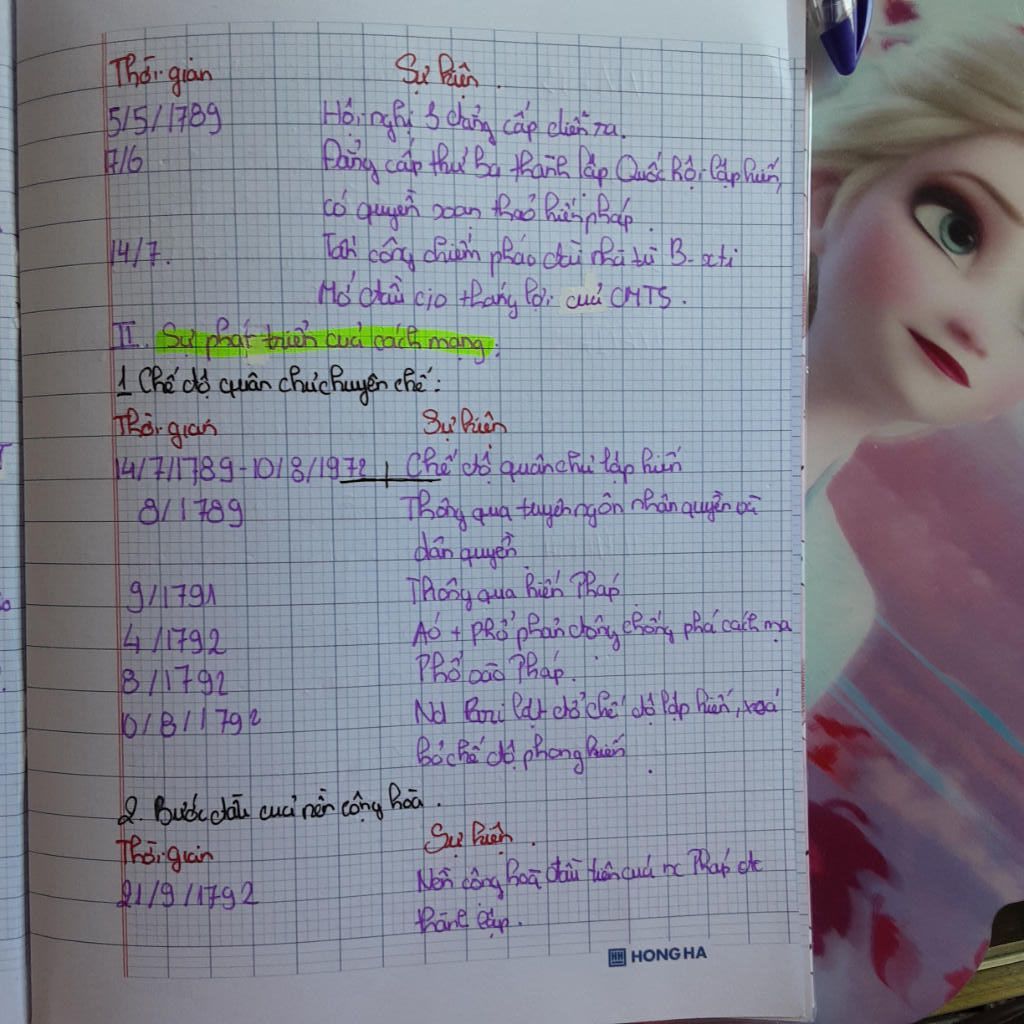 Thời gian Sự kiện.
5/5/1789 Hội nghị 3 đẳng cấp diễn ra.
7/6 Đẳng cấp thứ ba thành lập Quốc hội lập hiến,
có quyền soạn thảo hiến pháp.
14/7. Tấn công chiếm pháo đài nhà tù B-xti
Mở đầu c/o thắng lợi của CMTS.
II. Sự phát triển của cách mạng.
1 Chế độ quân chủ chuyên chế:
Thời gian Sự kiện
14/7/1789-10/8/1972 Chế độ quân chủ lập hiến
8/1789 Thông qua tuyên ngôn nhân quyền và
dân quyền
9/1791 Thông qua hiến Pháp
4/1792 Áo + Phổ phản động chống phá cách mạ
8/1792 Phổ vào Pháp.
10/8/1792 Nd Pari lật đổ chế độ lập hiến, xoá
bỏ chế độ phong kiến
2. Bước đầu của nền cộng hoà.
Thời gian Sự kiện.
21/9/1792 Nền cộng hoà đầu tiên của nc Pháp đc
thành lập.
HH HONG HA